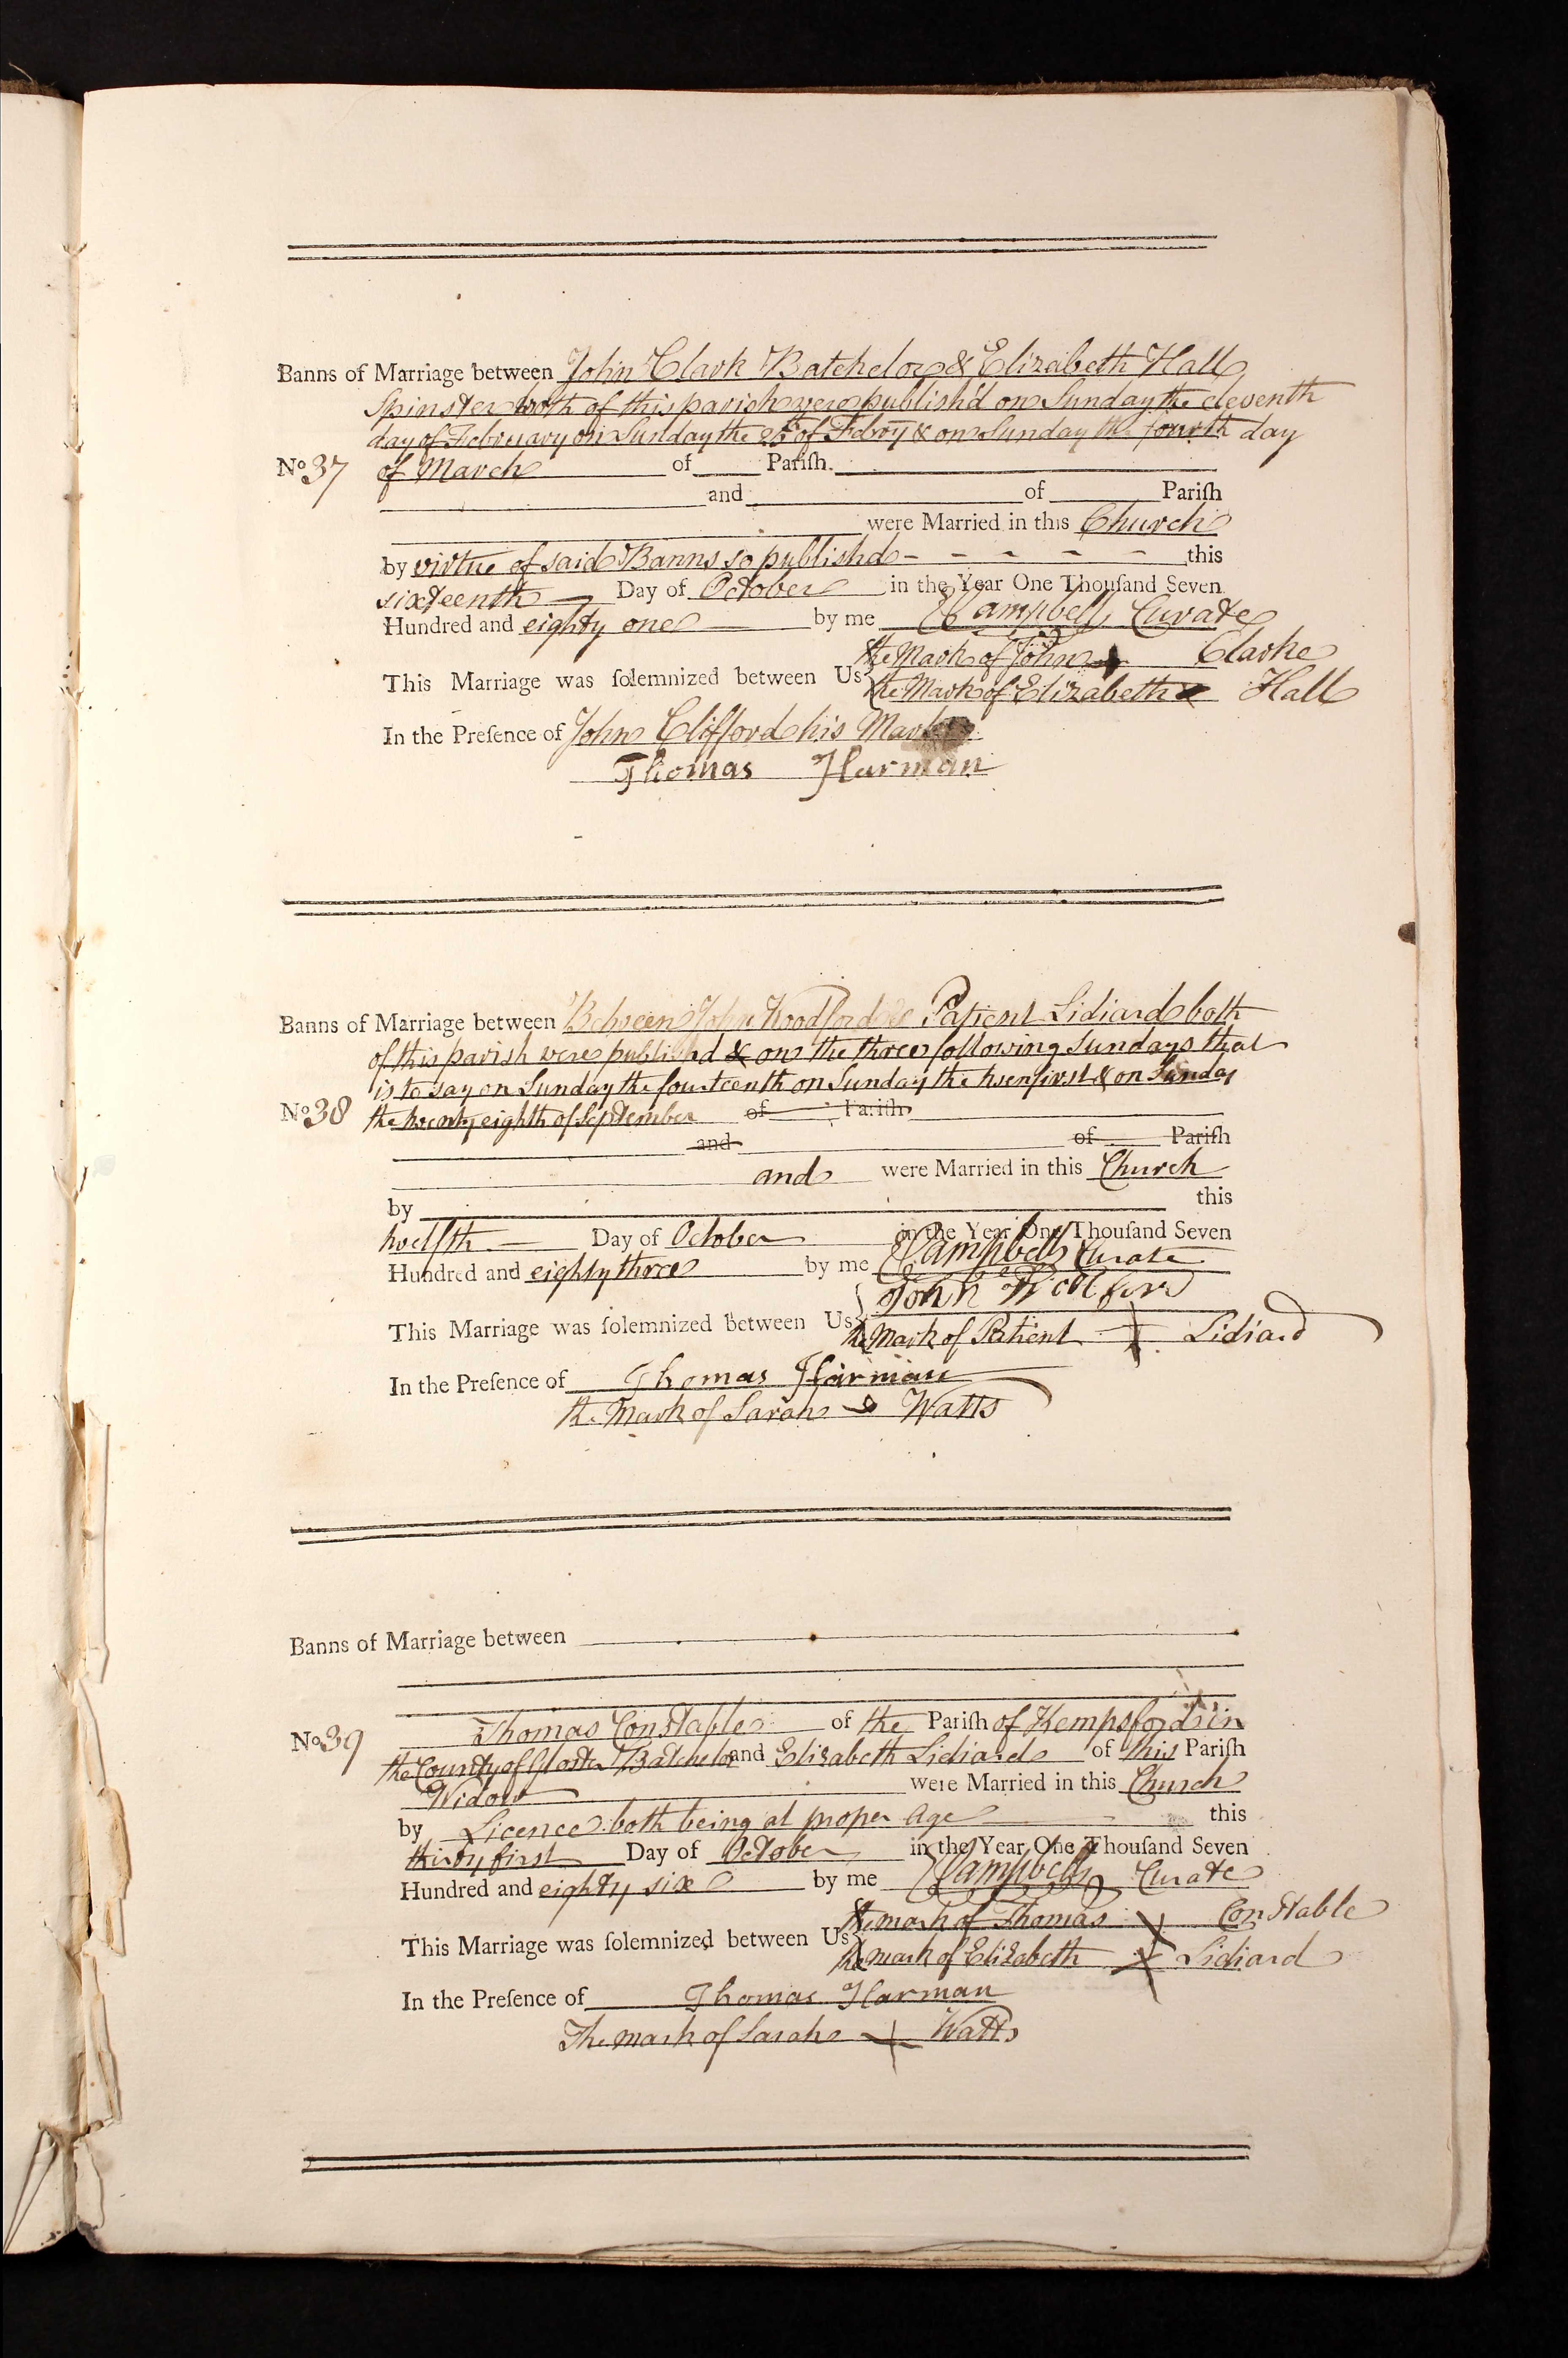 Banns of Marriage between John Clark Batchelor & Elizabeth Hall
Spinster both of this parish were publish'd on Sunday the eleventh
day of February on Sunday the 25th of Febry & on Sunday the fourth day
No 37 of March of Pariſh
and of Pariſh
were Married in this Church
by virtue of said Banns so publishd - - - - - this
sixteenth Day of October in the Year One Thouſand Seven
Hundred and eighty one by me Campbell Curate
This Marriage was ſolemnized between Us the Mark of John Clarke
the Mark of Elizabeth x Hall
In the Preſence of John Clifford his Mark
Thomas Harman
Banns of Marriage between Between John Woodford & Patient Lidiard both
of this parish were publishd & on the three following Sundays that
is to say on Sunday the fourteenth on Sunday the twenfirst & on Sunday
No 38 the twenty eighth of September of Pariſh
and of Pariſh
and were Married in this Church
by this
twelfth Day of October in the Year One Thouſand Seven
Hundred and eighty three by me Campbell Curate
This Marriage was ſolemnized between Us John
the Mark of Patient + Lidiard
In the Preſence of Thomas Harman
the Mark of Sarah Watts
Banns of Marriage between
No 39 Thomas Constable of the Pariſh of Kempsford in
the County of Gloster Batchelor and Elizabeth Lidiard of this Pariſh
Widow were Married in this Church
by Licence both being at proper Age this
thirty first Day of October in the Year One Thouſand Seven
Hundred and eighty six by me Campbell Curate
This Marriage was ſolemnized between Us the mark of Thomas x Constable
the mark of Elizabeth x Lidiard
In the Preſence of Thomas Harman
The mark of Sarah + Watts